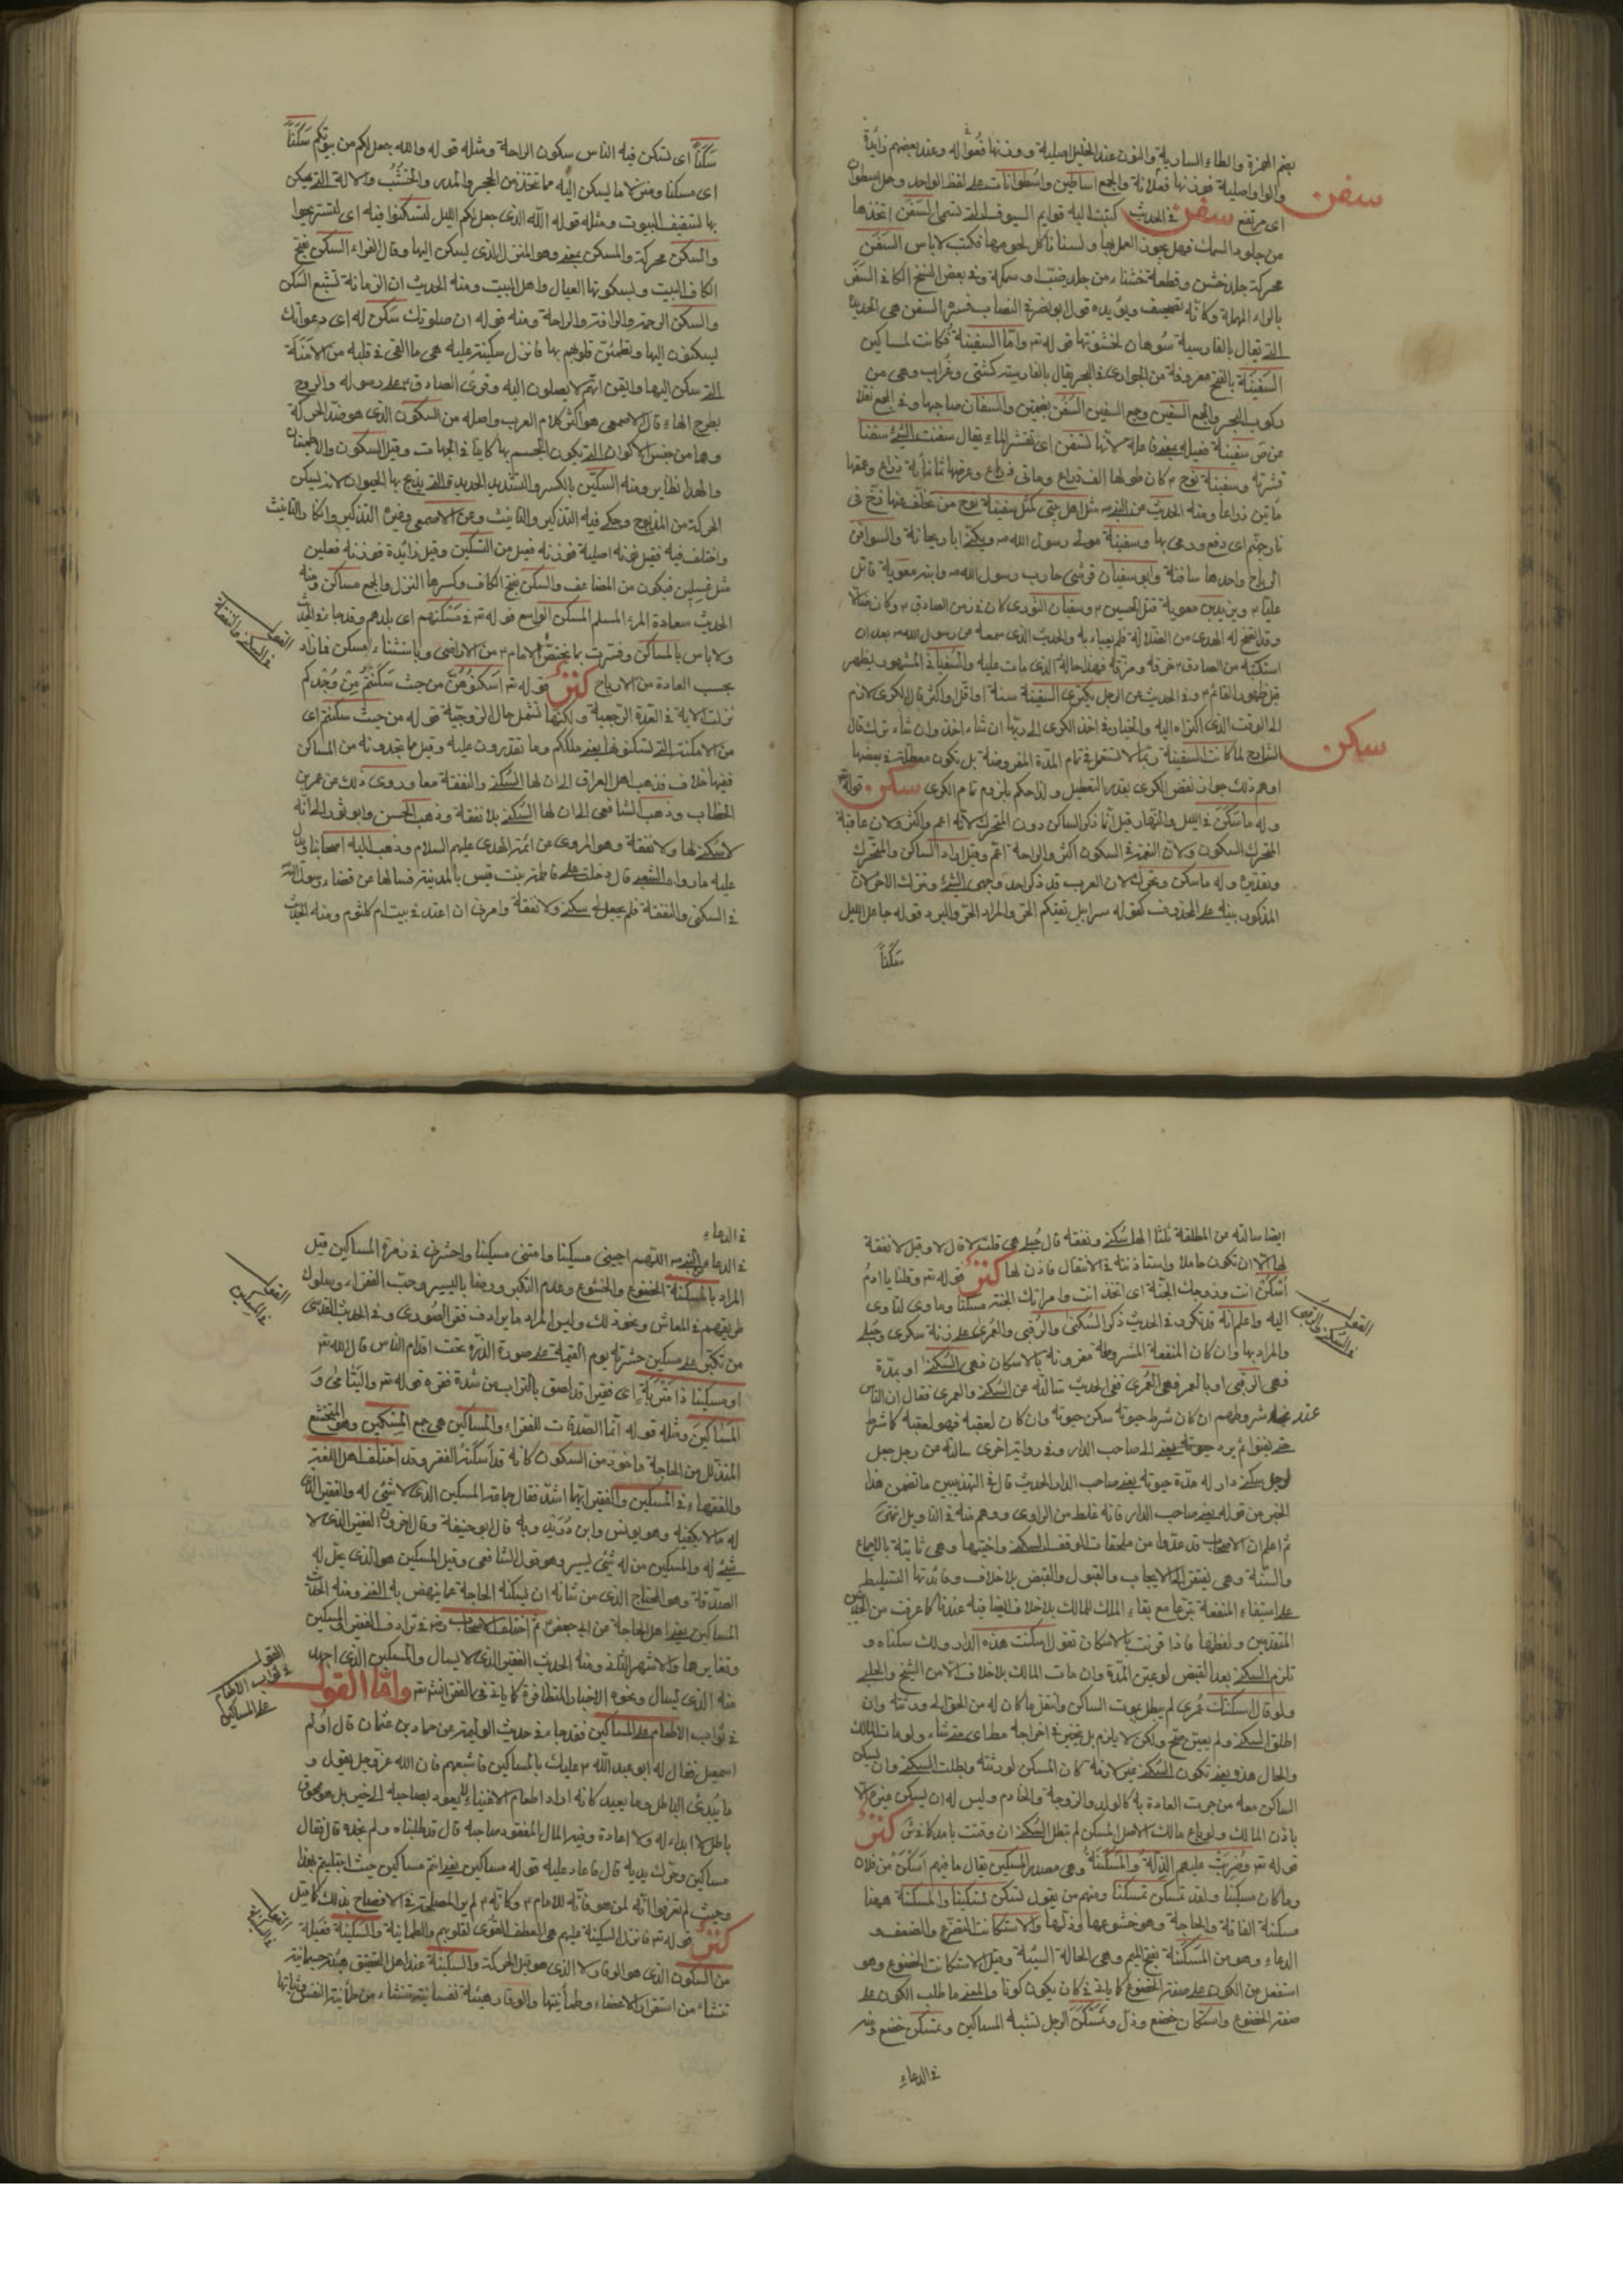 بضم الهمزة والطاء السادية والنون عند الخليل اصلية ووزنها فعوالة وعند بعضهم زائدة
والواو اصلية فوزنها فعلانة والجمع اساطين واسطوانات على لفظ الواحد
سفن
اى مرتفع سفن فى الحديث كتبت اليه قوايم السيوف التى تسمى السفن اتخذها
من جلود السمك فهل يجوز العمل بها ولسنا ناكل لحومها فكتب لا باس السفن
محركة جلد خشن وقطعة خشناء من جلد ضب او سمكة وفى بعض النسخ الكافى السفر
بالراء المهملة وكانه تصحيف ويؤيده قول ابو نصر فى النصاب فسر السفن هى الحديدة
التى يقال بالفارسية سوهان لخشونتها قوله تع واما السفينة فكانت لمساكين
السفينة بالفتح معروفة من الجوارى فى البحر يقال بالفارسية كشتى وغراب وهى من
ركوب البحر والجمع السفين وجمع السفين السفن بضمتين والسفان صاحبها
سفينة فعيلة بمعنى فاعلة لانها تسفن اى تقشر الماء يقال سفنت الشئ سفنا
قشرته وسفينة نوح ع كان طولها الف ذراع ومأتى ذراع وعرضها ثمانمأية ذراع وعمقها
مأتين ذراعا ومنه الحديث عن النبى ص مثل اهل بيتى كمثل سفينة نوح من تخلف عنها زخ فى
نار جهنم اى دفع ورمى بها وسفينة مولى رسول الله ص ويكنى ابا ريحانة والسوافن
الرياح واحدها سافنة وابو سفيان قرشى حارب رسول الله ص وابنه معوية قاتل
عليا ع وبن يزيد بن معوية قتل الحسين ع وسفيان الثورى كان فى زمن الصادق ع وكان
استكتبه من الصادق ع خرقه ومزقه فهذا حاله الذى مات عليه والسفيانى المشهور يظهر
قبل ظهور القائم ع وفى الحديث عن الرجل يكترى السفينة سنة او اقل او اكثر قال الكرى لازم
الى الوقت الذى اكتراه اليه والخيار فى اخذ الكرى الى ربها ان شاء اخذ وان شاء ترك قال
سكن
الشارح لما كانت السفينة ربما لا تستعمل فى تمام المدة المفروضة بل تكون معطلة فى بعضها
اوهم ذلك جواز نقص الكرى بقدر التعطيل ولذا حكم بلزوم تمام الكرى سكن قوله تع
وله ما سكن فى الليل والنهار قيل انما ذكر الساكن دون المتحرك لانه اعم واكثر ولان عاقبة
المتحرك السكون ولان النعمة فى السكون اكثر والراحة اعم وقيل اراد الساكن والمتحرك
وتقديره وله ما سكن وتحرك لان العرب قد تذكر احد وجهى الشئ وتترك الآخر لان
المذكور ينبه على المحذوف كقوله سرابيل تقيكم الحر والمراد الحر والبرد قوله جاعل الليل
سكنا
سكنا اى يسكن فيه الناس سكون الراحة ومثله قوله والله جعل لكم من بيوتكم سكنا
اى مسكنا وموضعا ما يسكن اليه مما تتخذ من الحجر والمدر والخشب والآلة التى يمكن
بها تسقيف البيوت ومثله قوله الله الذى جعل لكم الليل لتسكنوا فيه اى لتستريحوا
والسكن محركة والمسكن بمعنى وهو المنزل الذى يسكن اليها وقال الفراء السكن بفتح
الكاف البيت وبسكونها العيال واهل البيت ومنه الحديث ان الرمانة لتشبع السكن
والسكن الرحمة والرافة والراحة ومنه قوله ان صلوتك سكن له اى دعواتك
يسكنون اليها وتطمئن قلوبهم بها فانزل سكينته عليه هى ما القى فى قلبه من الامنة
التى سكن اليها وايقن انهم لا يصلون اليه وقرئ الصادق ع على رسوله والروح
بطرح الهاء قال الاصمعى هو اكثر كلام العرب واصله من السكون الذى هو ضد الحركة
وهما من جنس الاكوان التى يكون الجسم بها كاينا فى الجهات وقيل السكون والاطمينان
والهدا نظاير ومنه السكين بالكسر والتشديد الحديدة التى يذبح بها الحيوان لانه يسكن
الحركة من المذبوح وحكى فيه التذكير والتانيث وعن الاصمعى وغيره التذكير وانكار التانيث
واختلف فيه فقيل نونه اصلية فوزنه فعيل من التسكين وقيل زائدة فوزنه فعلين
مثل غسلين فيكون من المضاعف والسكن بفتح الكاف وكسرها المنزل والجمع مساكن ومنه
الحديث سعادة المرء المسلم المسكن الواسع قوله تع فى مسكنهم اى بلدهم وقد جاء فى الحديث
القول فى السكنى والنفقة
ولا باس بالمساكن وفسرت بما يختص بالامام ع من الاراضى وباستثناء المسكن فما زاد
بحسب العادة من الارباح كنز قوله تع اسكنوهن من حيث سكنتم من وجدكم
نزلت الآية فى العدة الرجعية ولكنها تشمل حال الزوجية قوله من حيث سكنتم اى
من الامكنة التى تسكنونها يعنى ملككم وما تقدرون عليه وقيل مما تجدونه من المساكن
ففيها خلاف فذهب اهل العراق الى ان لها السكنى والنفقة معا وروى ذلك عن عمر بن
الخطاب وذهب الشافعى الى ان لها السكنى بلا نفقة وذهب الحسن وابو ثور الى انه
لا سكنى لها ولا نفقة وهو المروى عن ائمة الهدى عليهم السلام وذهب اليه اصحابنا ويدل
عليه ما رواه الشعبى قال دخلت على فاطمة بنت قيس بالمدينة فسالها عن قضاء رسول الله
فى السكنى والنفقة فلم يجعل له سكنى ولا نفقة وامرنى ان اعتد فى بيت ام كلثوم ومنه الحديث
ايضا سالته عن المطلقة ثلثا الها سكنى ونفقة قال حبلى هى قلت لا قال لا وقيل لا نفقة
لها الا ان تكون حاملا واستاذنته فى الانتقال فاذن لها كنز قوله تع وقلنا يا ادم
اسكن انت وزوجك الجنة اى اتخذ انت وامراتك الجنة مسكنا وماوى لتاوى
القول فى السكنى والرقبى
اليه واعلم انه قد تكرر فى الحديث ذكر السكنى والرقبى والعمرى على زنة سكرى وحبلى
والمراد بها وان كان المنفعة المشروطة مقرونة بالاسكان فهى السكنى او بمدة
فهى الرقبى او بالعمر فهى العمرى ففى الحديث سالته عن السكنى والعمرى فقال ان الناس
عند شروطهم ان كان شرط حيوته سكن حيوته وان كان لعقبه فهو لعقبه كما شرط
حتى يفنوا ثم يرد الى صاحب الدار وفى رواية اخرى سالته عن رجل جعل
لرجل سكنى دار له مدة حيوته يعنى صاحب الدار الحديث قال فى التهذيبين ما تضمن هذا
الخبر من قوله يعنى صاحب الدار فانه غلط من الراوى ووهم منه فى التاويل انتهى
ثم اعلم ان الاصحاب قد عدوا من ملحقات الوقف السكنى واختيها وهى ثابتة بالاجماع
والسنة وهى يفتقر الى الايجاب والقبول والقبض بلا خلاف وفائدتها التسليط
على استيفاء المنفعة تبرعا مع بقاء الملك للمالك بلا خلاف ايضا فيه عندنا كما عرفت من الحديثين
المتقدمين ولفظها فاذا قرنت بالاسكان تقول اسكنت هذه الدار ولك سكناه و
تلزم السكنى بعد القبض لو عين المدة وان مات المالك بلا خلاف الا من الشيخ والحلبى
ولو قال اسكنتك عمرى لم يبطل بموت الساكن وانتقل ما كان له من الحق الى ورثته وان
اطلق السكنى ولم يعين صح ولكن لا يلزم بل يتخير فى اخراجه مطلقا متى شاء ولو مات المالك
والحال هذه يعنى تكون السكنى غير لازمة كان المسكن لورثته وبطلت السكنى وان يسكن
الساكن معه من جرت العادة به كالولد والزوجة والخادم وليس له ان يسكن غيرهم الا
باذن المالك ولو باع مالك الاصل المسكن لم تبطل السكنى ان وقتت بامد كنز
قوله تع وضربت عليهم الذلة والمسكنة وهى مصدر المسكين يقال ما فيهم اسكن من فلان
وما كان مسكينا ولقد تمسكن تمسكنا ومنهم من يقول تسكن تسكينا والمسكنة ههنا
مسكنة الفاقة والحاجة وهو خشوعها وذلها والاستكانة التضرع والضعف
الدعاء وهو من المسكنة بفتح الميم وهى الحالة السيئة وقيل الاستكانة الخضوع وهو
استفعل من الكون على صفة الخضوع كما ياتى فى كان يكون كونا والمعنى ما طلب الكون على
صفة الخضوع واستكان خضع وذل وتمسكن الرجل تشبه المساكين وتمسكن خضع ومنه
فى الدعاء
فى الدعاء
فى الدعاء عن النبى ص اللهم احينى مسكينا وامتنى مسكينا واحشرنى فى زمرة المساكين قيل
القول فى المسكين
المراد بالمسكنة الخضوع والخشوع وعدم التكبر ورضا باليسير وحب الفقراء وسلوك
طريقهم فى المعاش ونحو ذلك وليس المراد ما يرادف فقر الصورى وفى الحديث القدسى
من تكبر على مسكين حشرته يوم القيمة على صورة الذرة تحت اقدام الناس قال الله تع
او مسكينا ذا متربة اى فقيرا قد لصق بالتراب من شدة فقره قوله تع واليتامى و
المساكين ومثله قوله انما الصدقات للفقراء والمساكين هى جمع المسكين وهو المتخشع
المتذلل من الحاجة ماخوذ من السكون كانه قد اسكنته الفقر وقد اختلف اهل اللغة
والفقهاء فى المسكين والفقير ايهما اشد فقال جماعة المسكين الذى لا شئ له والفقير الذى
له ما لا يكفيه وهو يونس وابن دريد وبه قال ابو حنيفة وقال اخرون الفقير الذى لا
شئ له والمسكين من له شئ يسير وهو قول الشافعى وقيل المسكين هو الذى يحل له
الصدقة وهو المحتاج الذى من شانه ان يسكنه الحاجة عما ينهض به الغنى ومنه الحديث
المساكين يعنى اهل الحاجة عن ابى جعفر ع ثم اختلف الاصحاب رض فى ترادف الفقير والمسكين
وتغايرها والاشهر الثانى ومنه الحديث الفقير الذى لا يسال والمسكين الذى اجهد
القول فى ثواب الاطعام على المساكين
منه الذى يسال ونحوه الاخبار المتظافرة كما ياتى فى الفقر انش تع واما القول
فى ثواب الاطعام على المساكين فقد جاء فى حديث الوليمة عن حماد بن عثمان قال اولم
اسمعيل فقال له ابو عبد الله ع عليك بالمساكين فاشبعهم فان الله عز وجل يقول و
ما يبدئ الباطل وما يعيد كانه اراد اطعام الاغنياء لا يعود بصاحبه الى خير بل هو محوق
باطل لا ابداء له ولا اعادة وفيه المال المفقود صاحبه قال قد طلبناه ولم نجده قال فقال
مساكين وحرك يديه قال فاعاد عليه قوله مساكين يعنى انتم مساكين حيث ابتليتم بهذا
وحيث لم تعرفوا انه لمن هو فانه للامام ع وكانه ع لم ير المصلحة فى الافصاح بذلك كما قيل
القول فى السكينة
كنز قوله تع فانزل السكينة عليهم هى اللطف المقوى لقلوبهم والطمانينة والسكينة فعيلة
من السكون الذى هو الوقار لا الذى هو قبل الحركة والسكينة عند اهل التحقيق هيئة جسمانية
تنشاء من استقرار الاعضاء وطمانينتها والوقار هيئة نفسانية تنشاء من طمانينة النفس وثباتها